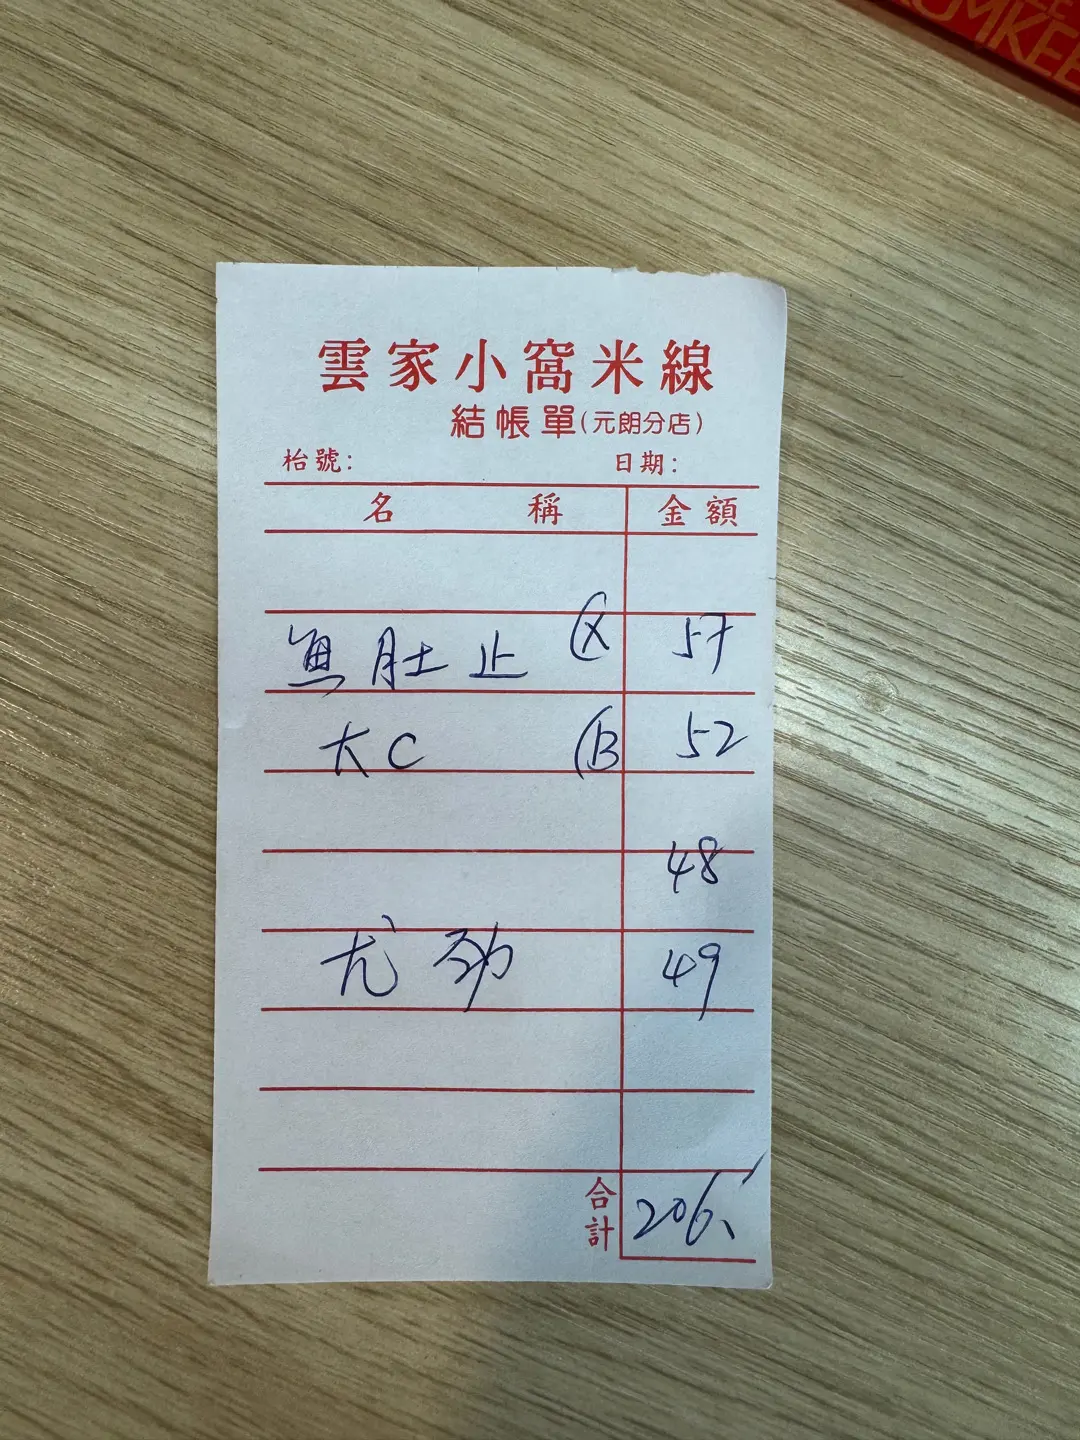 UMKEE
雲家小窩米線
結帳單(元朗分店)
枱號: 日期:
名 稱 金額
魚肚止 (X 57
大C (B 52
48
尤劲 49
合計 206